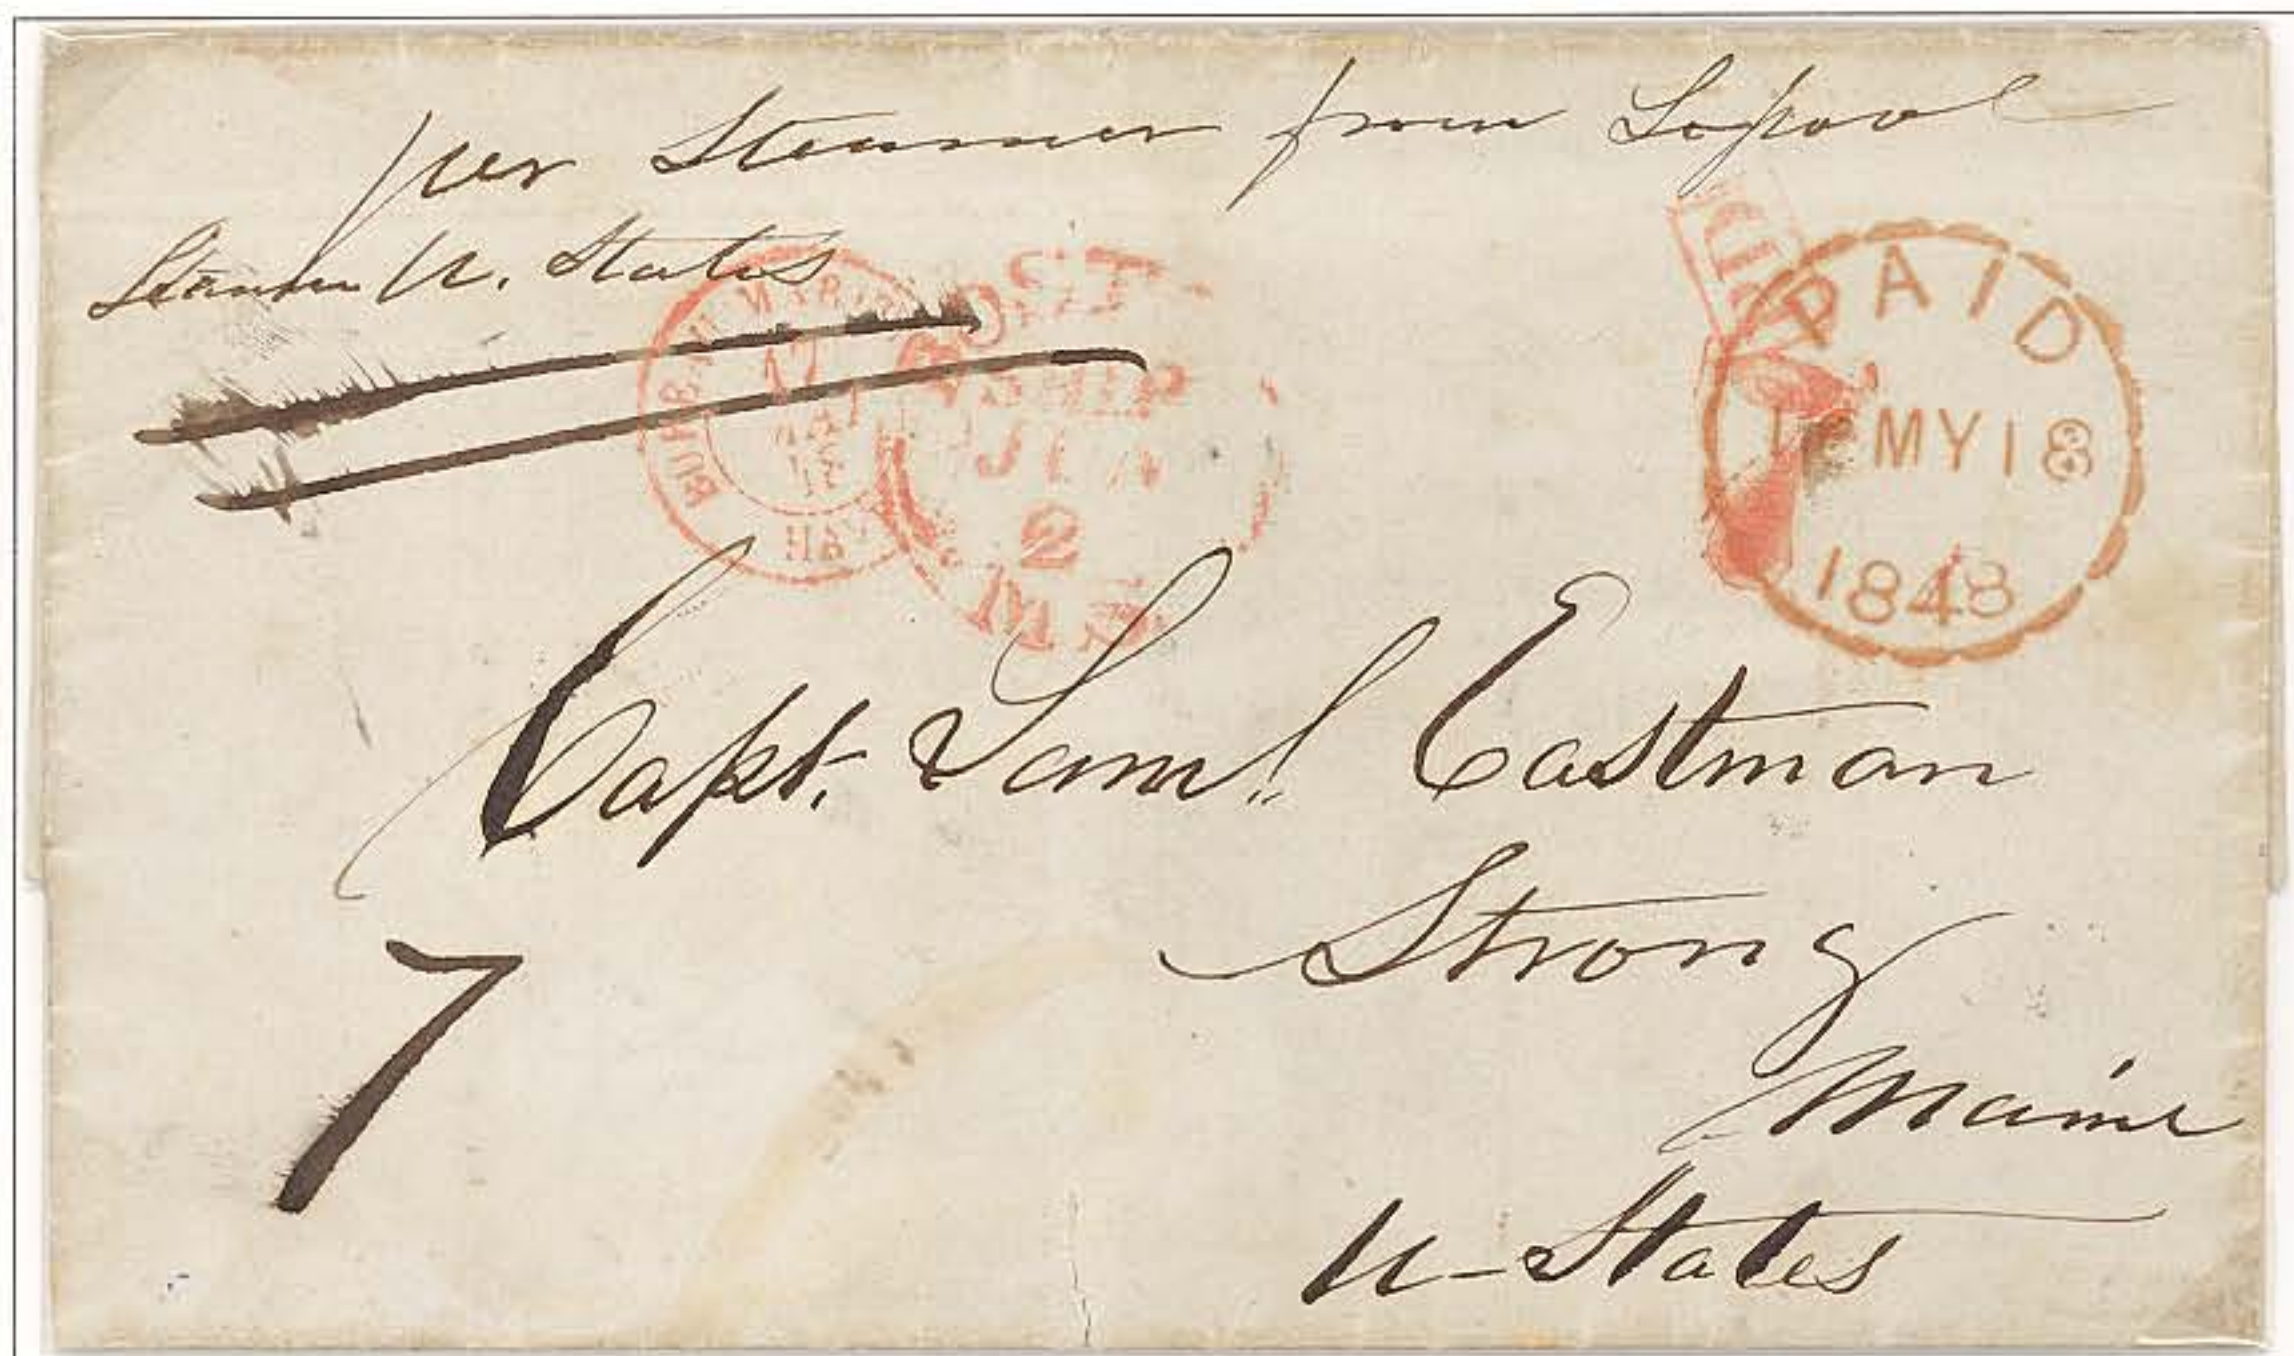 per Steamer from Lopool
Steamer U. States
BUREAU MARIT
17
MAI
HA
BOSTON
SHIP
JUN
2
MS
PD
PAID
MY18
1848
Capt. Saml. Eastman
Strong
Maine
U-States
7